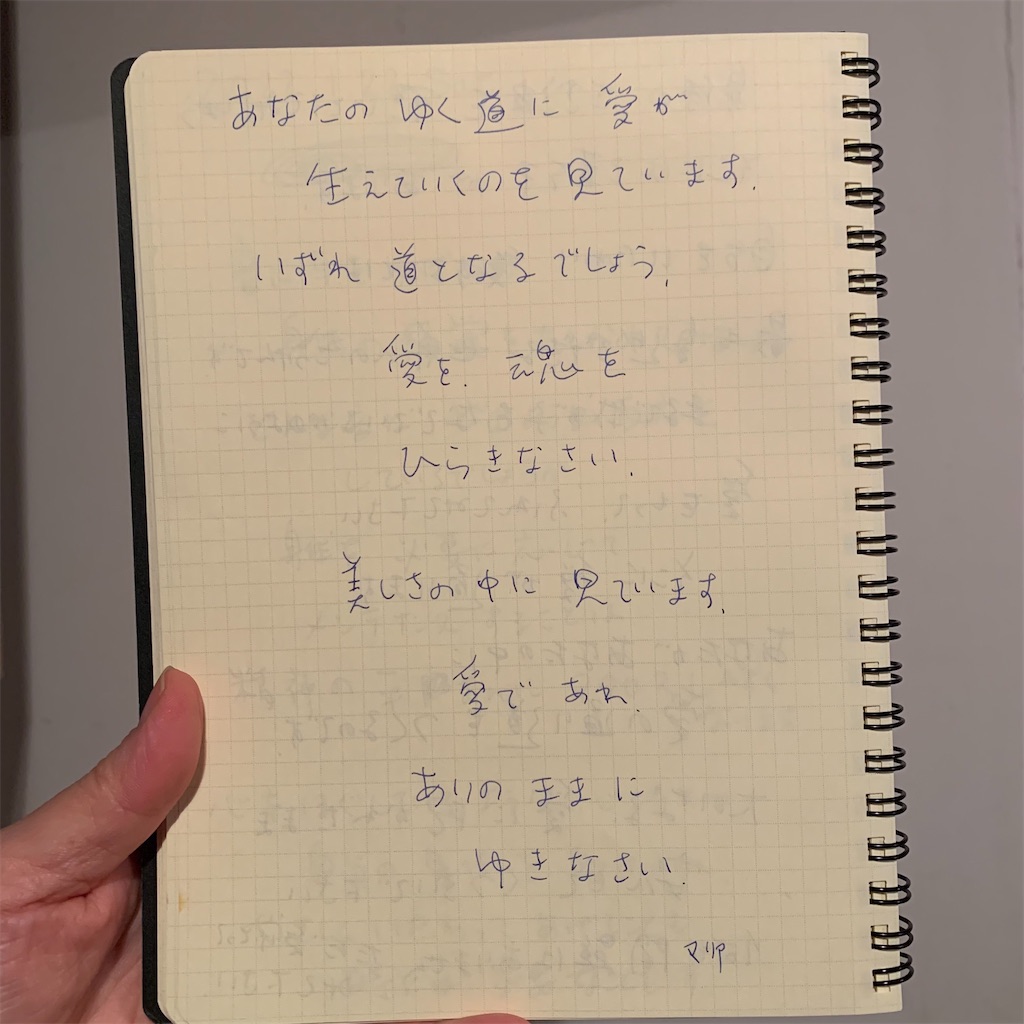 あなたの ゆく道に 愛が
生えていくのを 見ています.
いずれ 道となるでしょう.
愛を. 魂を
ひらきなさい.
美しさの中に 見ています.
愛で あれ.
ありの ままに
ゆきなさい.
マリア